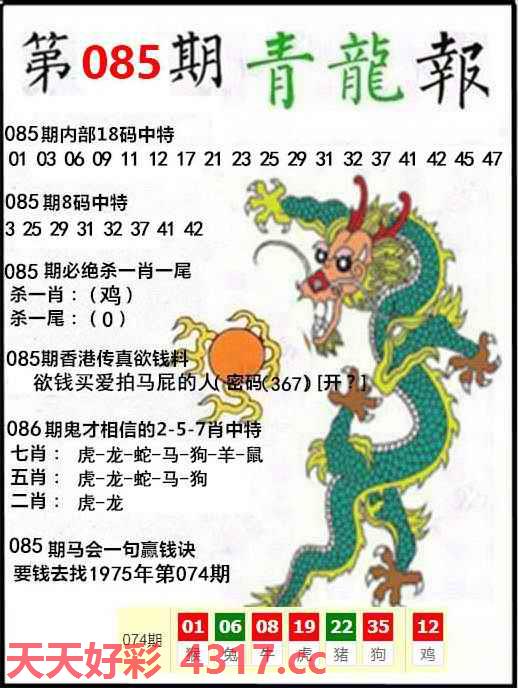 第085期 青龍報
085期内部18码中特
01 03 06 09 11 12 17 21 23 25 29 31 32 37 41 42 45 47
085期8码中特
3 25 29 31 32 37 41 42
085期必绝杀一肖一尾
杀一肖:(鸡)
杀一尾:(0)
085期香港传真欲钱料
欲钱买爱拍马屁的人(密码(367)[开?]
086期鬼才相信的2-5-7肖中特
七肖: 虎-龙-蛇-马-狗-羊-鼠
五肖: 虎-龙-蛇-马-狗
二肖: 虎-龙
085期马会一句赢钱诀
要钱去找1975年第074期
074期 01 06 08 19 22 35 12
猴 兔 牛 虎 猪 狗 鸡
天天好彩 4317.cc